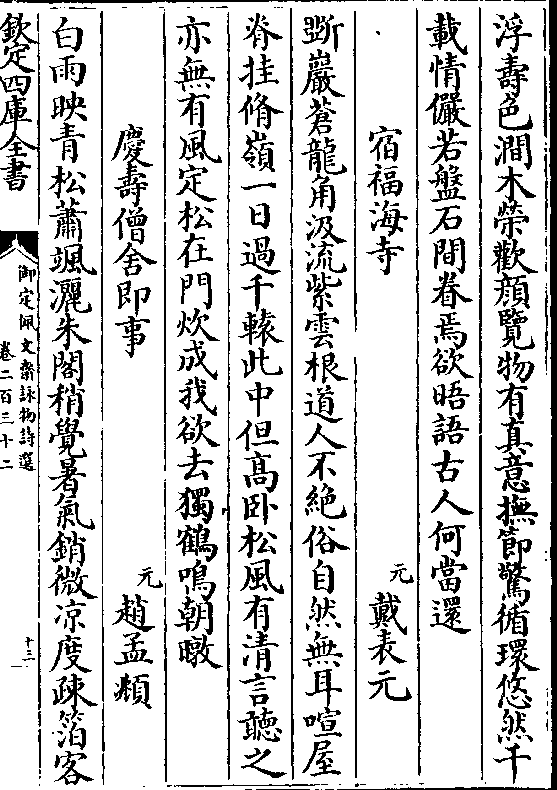 浮壽色澗木榮歡顔覽物有真意撫節驚循環悠然千
載情儼若盤石間眷焉欲晤語古人何當還
宿福海寺 元 戴表元
斲巖蒼龍角汲流紫雲根道人不絶俗自然無耳喧屋
脊挂脩嶺一日過千轅此中但高卧松風有清言聽之
亦無有風定松在門炊成我欲去獨鶴鳴朝暾
慶壽僧舍即事 元 趙孟頫
白雨映青松蕭颯灑朱閣稍覺暑氣銷微凉度疎箔客
欽定四庫全書
御定佩文齋詠物詩選
卷二百三十二
十三